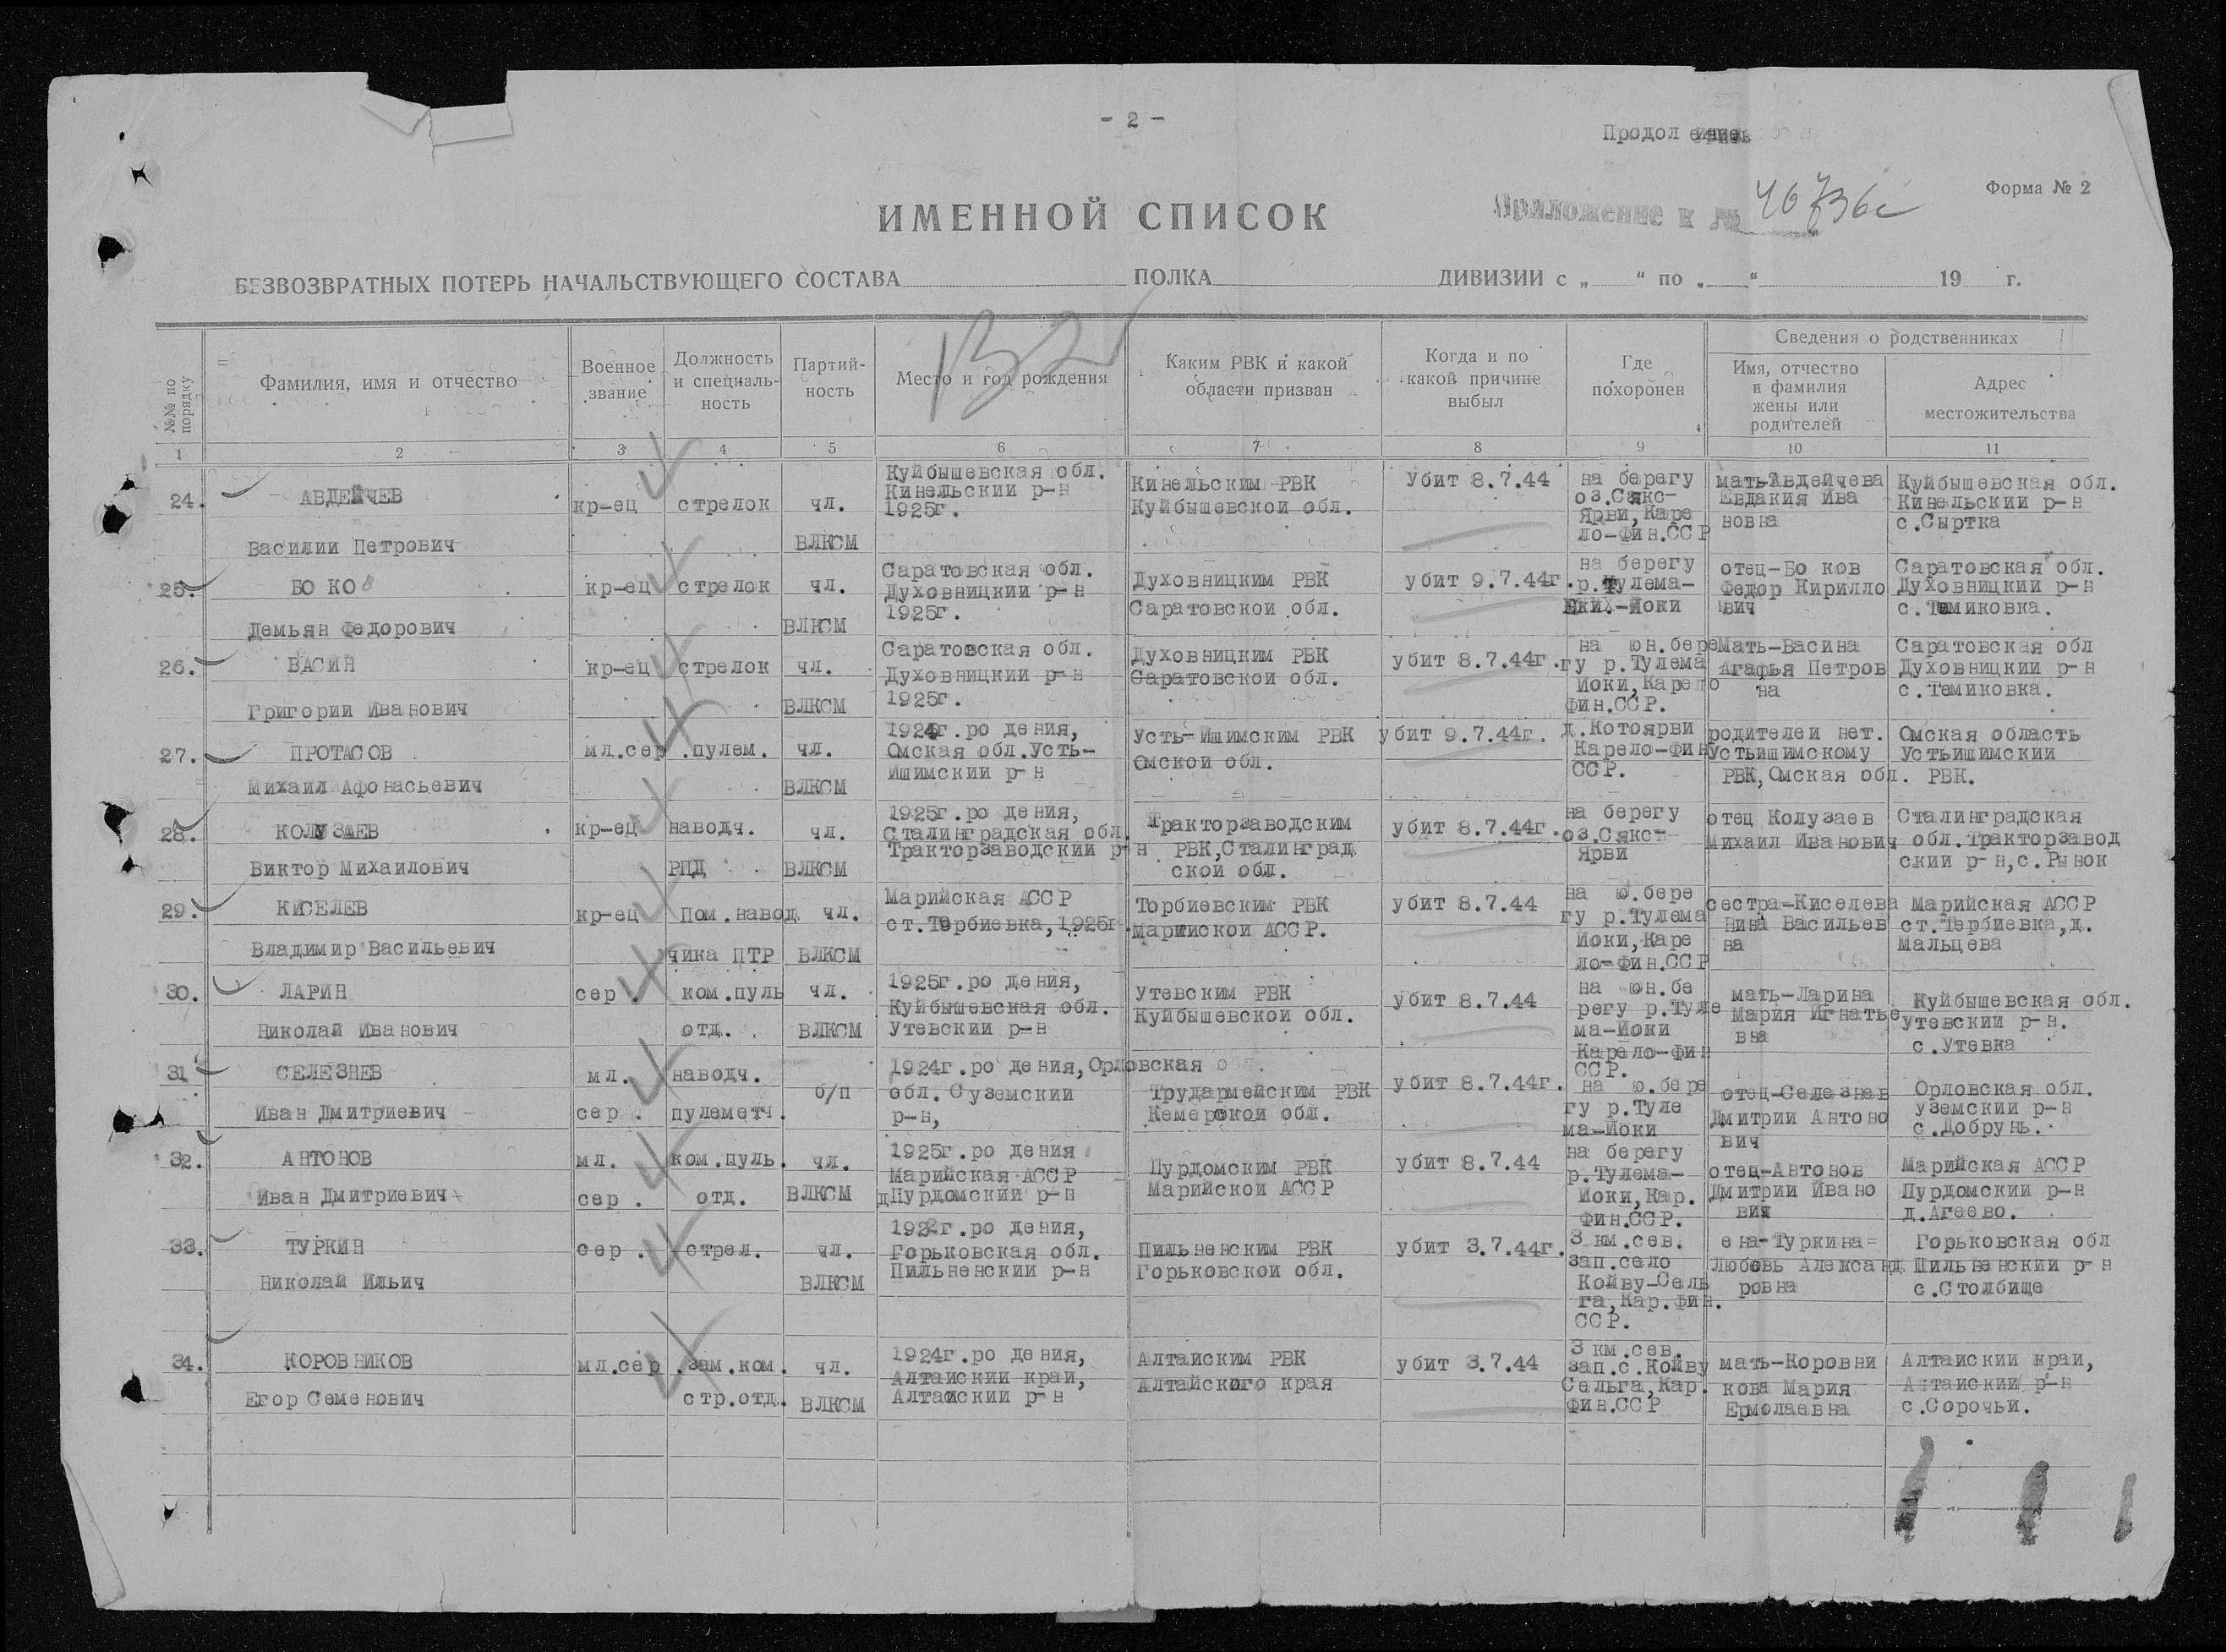 - 2 -
Продол ение
Приложение к № 46736с
Форма № 2
ИМЕННОЙ СПИСОК
БЕЗВОЗВРАТНЫХ ПОТЕРЬ НАЧАЛЬСТВУЮЩЕГО СОСТАВА ПОЛКА ДИВИЗИИ с „ “ по „ “ 19 г.
№№ по порядку
Фамилия, имя и отчество
Военное
звание
Должность
и специаль-
ность
Партий-
ность
Место и год рождения
Каким РВК и какой
области призван
Когда и по
какой причине
выбыл
Где
похоронен
Сведения о родственниках
Имя, отчество
и фамилия
жены или
родителей
Адрес
местожительства
1 2 3 4 5 6 7 8 9 10 11
24.
АВДЕЙЧЕВ
Василии Петрович
кр-ец
стрелок
чл.
ВЛКСМ
Куйбышевская обл.
Кинельскии р-н
1925г.
Кинельским РВК
Куйбышевскои обл.
Убит 8.7.44
на берегу
оз.Сякс-
Ярви,Каре
ло-Фин.ССР
мать-Авдейчева
Евдакия Ива
новна
Куйбышевская обл.
Кинельскии р-н
с.Сыртка
25.
БО КОВ
Демьян Федорович
кр-ец
стрелок
чл.
ВЛКСМ
Саратовская обл.
Духовницкии р-н
1925г.
Духовницким РВК
Саратовскои обл.
убит 9.7.44г.
на берегу
р.Тулема-
-Йоки
отец-Бо ков
Федор Кирилло
вич
Саратовская обл.
Духовницкии р-н
с.Темиковка.
26.
ВАСИН
Григории Иванович
кр-ец
стрелок
чл.
ВЛКСМ
Саратовская обл.
Духовницкии р-н
1925г.
Духовницким РВК
Саратовскои обл.
убит 8.7.44г.
на юн.бере
гу р.Тулема
Йоки,Карело
Фин.ССР.
Мать-Васина
Агафья Петров
на
Саратовская обл
Духовницкии р-н
с.Темиковка.
27.
ПРОТАСОВ
Михаил Афонасьевич
мл.сер
.пулем.
чл.
ВЛКСМ
1924г.ро дения,
Омская обл.Усть-
Ишимскии р-н
Усть-Ишимским РВК
Омскои обл.
убит 9.7.44г.
д.Котоярви
Карело-Фин
ССР.
родителеи нет.
Устьишимскому
РВК,Омская обл.
Омская область
Устьишимскии
РВК.
28.
КОЛУЗАЕВ
Виктор Михаилович
кр-ец
наводч.
РПД
чл.
ВЛКСМ
1925г.ро дения,
Сталинградская обл.
Тракторзаводский р-н
Тракторзаводским
РВК,Сталинград
скои обл.
убит 8.7.44г.
на берегу
оз.Сякс-
Ярви
отец Колузаев
Михаил Иванович
Сталинградская
обл.Тракторзавод
скии р-н,с.Рынок
29.
КИСЕЛЕВ
Владимир Васильевич
кр-ец
Пом.навод
чика ПТР
чл.
ВЛКСМ
Марийская АССР
ст.Торбиевка,1925г.
Торбиевским РВК
Марийскои АССР.
убит 8.7.44
на ю.бере
гу р.Тулема
Йоки,Каре
ло-Фин.ССР
сестра-Киселева
Нина Васильев
на
Марийская АССР
ст.Тербиевка,д.
Мальцева
30.
ЛАРИН
Николай Иванович
сер.
ком.пуль
отд.
чл.
ВЛКСМ
1925г.ро дения,
Куйбышевская обл.
Утевскии р-н
Утевским РВК
Куйбышевскои обл.
убит 8.7.44
на юн.бе
регу р.Туле
ма-Йоки
Карело-Фин
ССР.
мать-Ларина
Мария Игнатье
вна
Куйбышевская обл.
Утевскии р-н.
с.Утевка
31
СЕЛЕЗНЕВ
Иван Дмитриевич
мл.
сер.
наводч.
пулеметч.
б/п
1924г.ро дения,Орловская
обл.Суземскии
р-н,
Трудармейским РВК
Кемеровскои обл.
убит 8.7.44г.
на ю.бере
гу р.Туле
ма-Йоки
отец-Селезнев
Дмитрии Антоно
вич
Орловская обл.
уземскии р-н
с.Добрунь.
32.
АНТОНОВ
Иван Дмитриевич
мл.
сер.
ком.пуль.
отд.
чл.
ВЛКСМ
1925г.ро дения
Марийская АССР
Пурдомскии р-н
Пурдомским РВК
Марийскои АССР
убит 8.7.44
на берегу
р.Тулема-
Йоки,Кар.
Фин.ССР.
отец-Антонов
Дмитрии Ивано
вич
Марийская АССР
Пурдомскии р-н
д.Агеево.
33.
ТУРКИН
Николай Ильич
сер.
стрел.
чл.
ВЛКСМ
1922г.ро дения,
Горьковская обл.
Пильненскии р-н
Пильненским РВК
Горьковскои обл.
убит 3.7.44г.
3 км.сев.
зап.село
Койву-Сель
га,Кар.Фин.
ССР.
ена-Туркина
Любовь Александ
ровна
Горьковская обл
Пильненскии р-н
с.Столбище
34.
КОРОВНИКОВ
Егор Семенович
мл.сер
.зам.ком.
стр.отд.
чл.
ВЛКСМ
1924г.ро дения,
Алтаискии краи,
Алтаискии р-н
Алтаиским РВК
Алтайского края
убит 3.7.44
3 км.сев.
зап.с.Койву
Сельга,Кар.
Фин.ССР
мать-Коровни
кова Мария
Ермолаевна
Алтаискии краи,
Алтаискии р-н
с.Сорочьи.